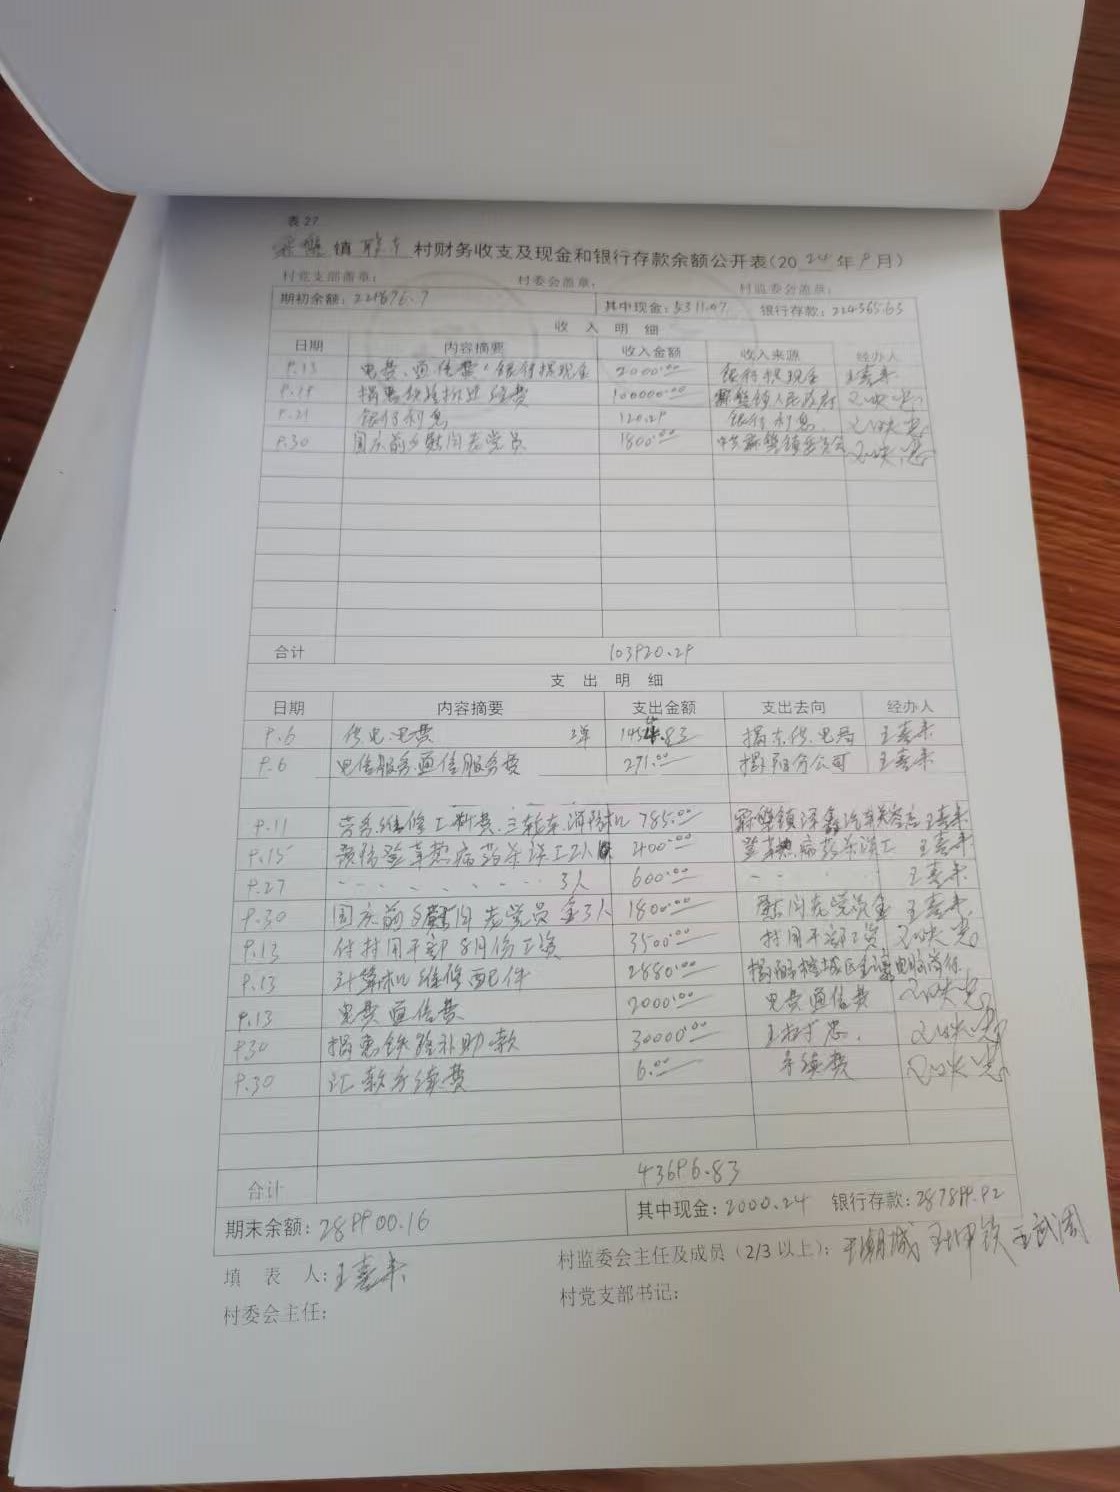 表27
霖磐镇 村财务收支及现金和银行存款余额公开表(2024年9月)
村党支部盖章： 村委会盖章： 村监委会盖章：
期初余额：229676.7 其中现金：5311.07 银行存款：224365.63
收入明细
日期 内容摘要 收入金额 收入来源 经办人
9.13 电费、通信费，银行提现金 2000.00 银行提现金 王喜来
9.19 揭惠铁路 经费 100000.00 霖磐镇人民政府
9.21 银行利息 120.29 银行利息
9.30 国庆前夕慰问老党员 1800.00 中共霖磐镇委员会
合计 103920.29
支出明细
日期 内容摘要 支出金额 支出去向 经办人
9.6 供电电费 3单 1454.83 揭东供电局 王喜来
9.6 电信服务通信服务费 271.00 揭阳分公司 王喜来
9.11 劳务维修工料费、三轮车、消防机 785.00 霖磐镇泽鑫汽车美容店 王喜来
9.15 预防登革热病药杀误工2人 400.00 登革热病药杀误工 王喜来
9.27 3人 600.00 王喜来
9.30 国庆前夕慰问老党员金3人 1800.00 慰问老党员金 王喜来
9.13 付村用干部8月份工资 3500.00 村用干部工资
9.13 计算机维修配件 2880.00 揭阳 城区 电脑商行
9.13 电费通信费 2000.00 电费通信费
9.30 揭惠铁路补助款 30000.00
9.30 汇款手续费 6.00 手续费
合计 43696.83
期末余额：289900.16 其中现金：2000.24 银行存款：287899.92
填表人：王喜来 村监委会主任及成员(2/3以上)： 王武周
村委会主任： 村党支部书记：